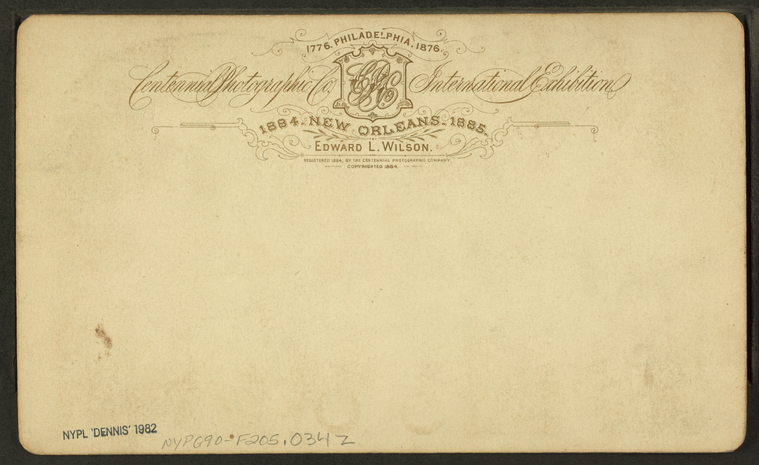 1776. PHILADELPHIA. 1876.
Centennial Photographic Co. International Exhibition
1884. NEW ORLEANS. 1885.
EDWARD L. WILSON.
REGISTERED 1884, BY THE CENTENNIAL PHOTOGRAPHIC COMPANY
COPYRIGHTED 1884.
NYPL 'DENNIS' 1982
NYPG90-F205.034Z